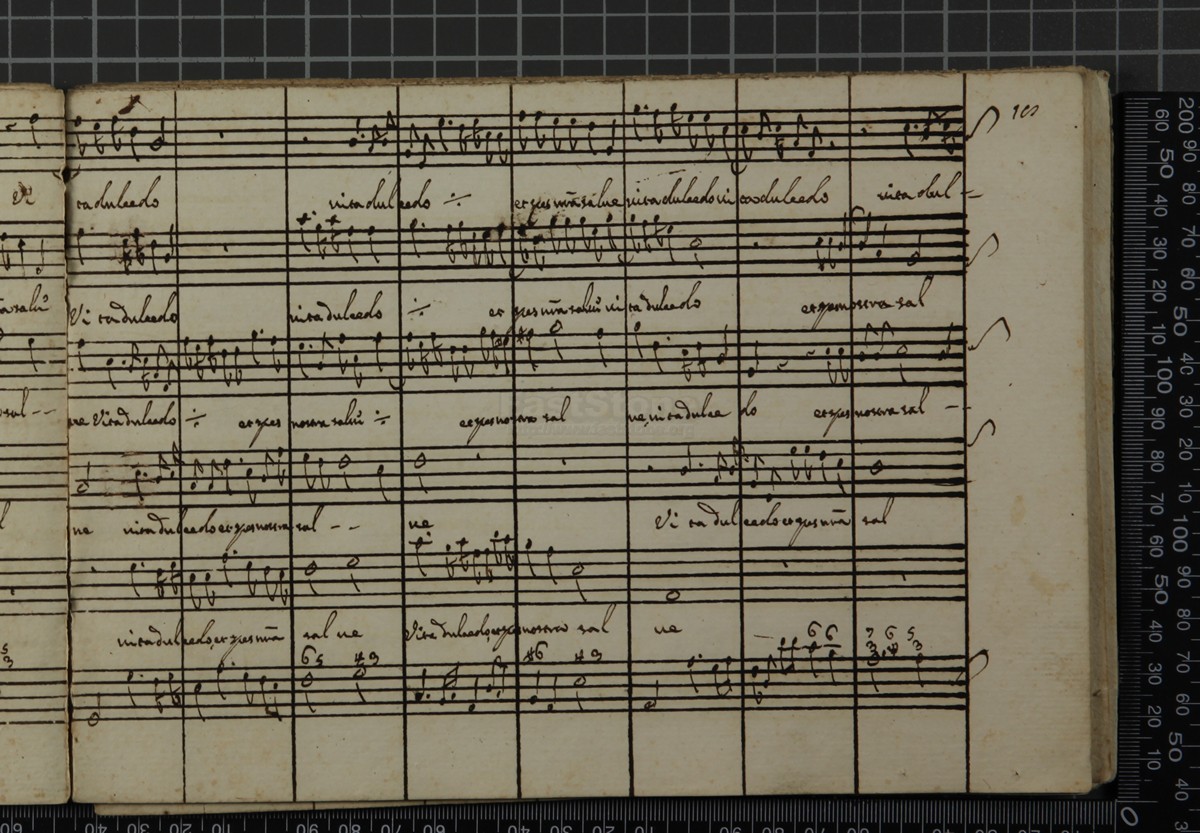 102
Vi ta dulcedo vita dulcedo ÷ et spes nr̃a salue vita dulcedo vi ta dulcedo vita dul -
Vi ta dulcedo vita dulcedo ÷ et spes nr̃a salũ vi ta dulcedo et spes nostra sal
sal - - ne Vita dulcedo ÷ et spes nostra salũ ÷ et spes nostra sal ue, vita dulce do et spes nostra sal -
ue vita dulcedo et spes nostra sal - - ue Vi ta dulcedo et spes nr̃a sal
vita dulcedo, et spes nr̃a sal ue Vita dulcedo, et spes nostra sal ue
5 3 6 5 # 3 # 6 # 3 6 6 6 5